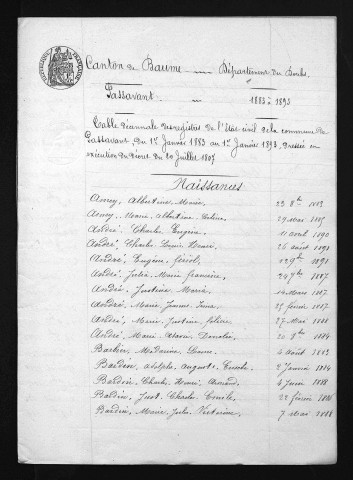 Canton de Baume — Département du Doubs.
Passavant — 1883 à 1893
Table décennale des registres de l'Etat civil de la commune de
Passavant, du 1er Janvier 1883 au 1er Janvier 1893, dressée en
exécution du décret du 20 Juillet 1807
Naissances
Albertine Marie, 23 8bre 1883
Marie Albertine 29 Mai 1885
André, Charles Eugène, 11 août 1890
André, Charles Louis Henri, 26 août 1892
André, Eugène 1891
André, Julie Marie Francine, 24 7bre 1887
André, Justine Maria, 14 Mars 1887
André, Marie Jeanne 25 février 1887
André, Marie Justine 27 Mai 1888
André, Marie 20 8bre 1884
Barbier, 6 août 1883
Bardin, Adolphe Auguste 2 Janvier 1884
Bardin, Charles Henri Armand, 4 Juin 1888
Bardin, Just Charles Emile, 22 février 1886
Bardin, Marie Julie Victorine, 7 Mai 1888